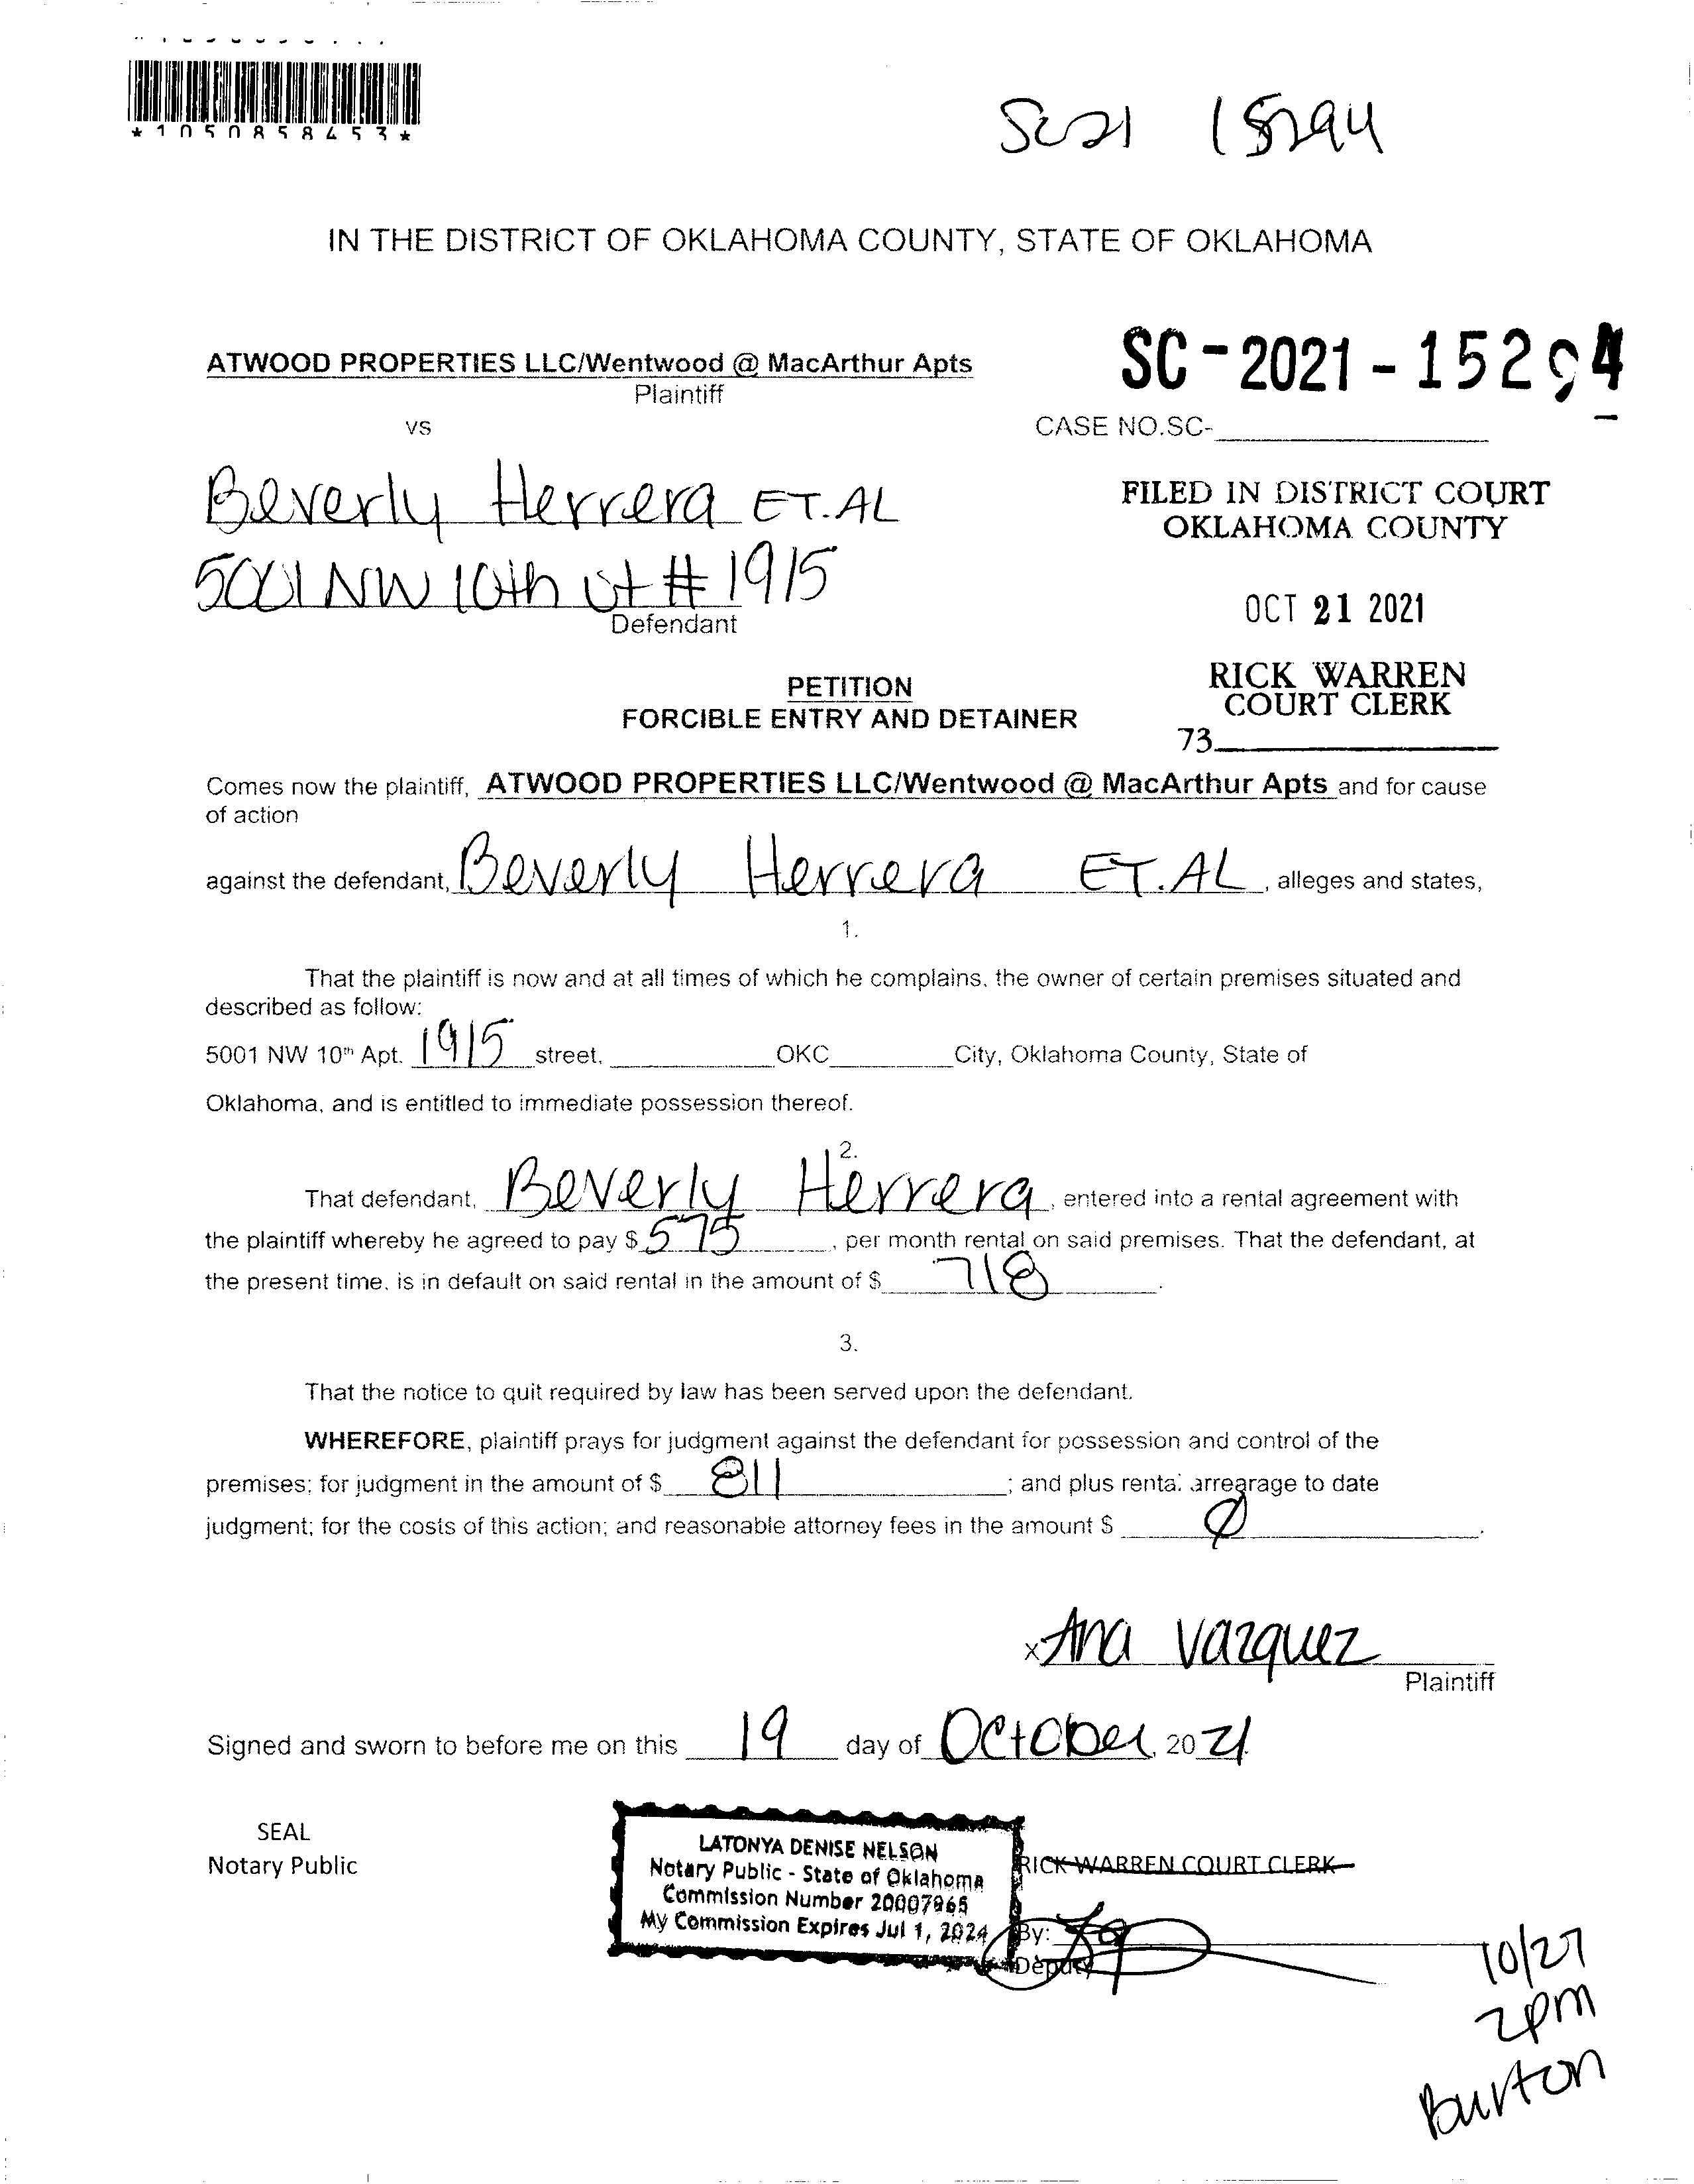 *1050858453*
SC21 15294
IN THE DISTRICT OF OKLAHOMA COUNTY, STATE OF OKLAHOMA
ATWOOD PROPERTIES LLC/Wentwood @ MacArthur Apts
Plaintiff
SC-2021-15294
vs
CASE NO.SC-
Beverly Herrera ET.AL
5001 NW 10th st # 1915
Defendant
FILED IN DISTRICT COURT
OKLAHOMA COUNTY
OCT 21 2021
RICK WARREN
COURT CLERK
73
PETITION
FORCIBLE ENTRY AND DETAINER
Comes now the plaintiff, ATWOOD PROPERTIES LLC/Wentwood @ MacArthur Apts and for cause
of action
against the defendant, Beverly Herrera ET.AL, alleges and states,
1.
That the plaintiff is now and at all times of which he complains, the owner of certain premises situated and
described as follow:
5001 NW 10th Apt. 1915 street, OKC City, Oklahoma County, State of
Oklahoma, and is entitled to immediate possession thereof.
2.
That defendant, Beverly Herrera, entered into a rental agreement with
the plaintiff whereby he agreed to pay $ 575, per month rental on said premises. That the defendant, at
the present time, is in default on said rental in the amount of $ 718.
3.
That the notice to quit required by law has been served upon the defendant.
WHEREFORE, plaintiff prays for judgment against the defendant for possession and control of the
premises; for judgment in the amount of $ 811; and plus rental arrearage to date
judgment; for the costs of this action; and reasonable attorney fees in the amount $ Ø.
x Ana Vazquez
Plaintiff
Signed and sworn to before me on this 19 day of October, 2021.
SEAL
Notary Public
LATONYA DENISE NELSON
Notary Public - State of Oklahoma
Commission Number 20007965
My Commission Expires Jul 1, 2024
RICK WARREN COURT CLERK
By:
Deputy
10/27
2pm
Burton